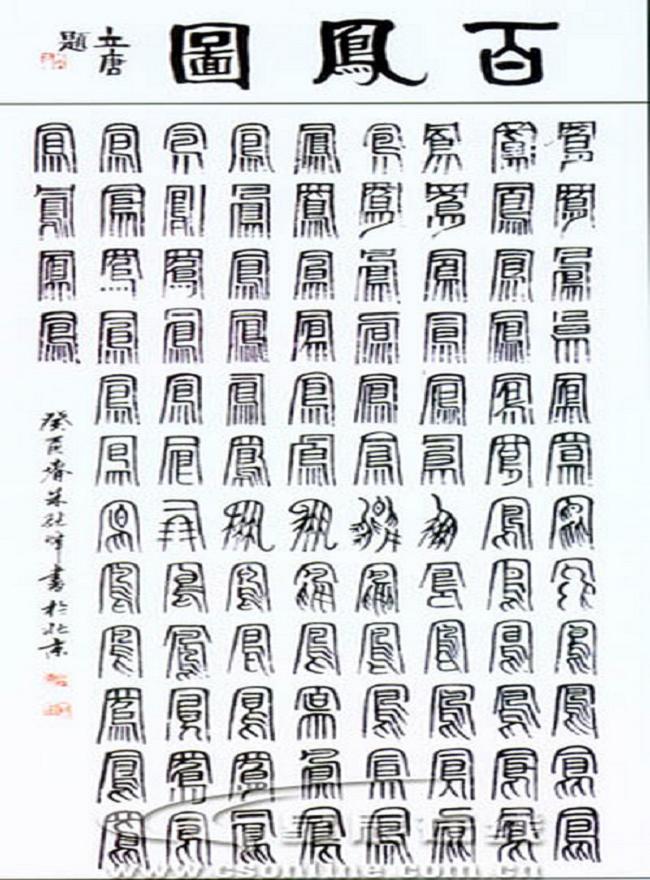 百鳳圖
立唐題
鳳鳳鳳鳳鳳鳳鳳鳳鳳鳳鳳鳳
鳳鳳鳳鳳鳳鳳鳳鳳鳳鳳鳳鳳
鳳鳳鳳鳳鳳鳳鳳鳳鳳鳳鳳鳳
鳳鳳鳳鳳鳳鳳鳳鳳鳳鳳鳳鳳
鳳鳳鳳鳳鳳鳳鳳鳳鳳鳳鳳鳳
鳳鳳鳳鳳鳳鳳鳳鳳鳳鳳鳳鳳
鳳鳳鳳鳳鳳鳳鳳鳳鳳鳳鳳鳳
鳳鳳鳳鳳鳳鳳鳳鳳鳳鳳鳳鳳
鳳鳳鳳鳳
癸酉書於北京
www.csonline.com.cn